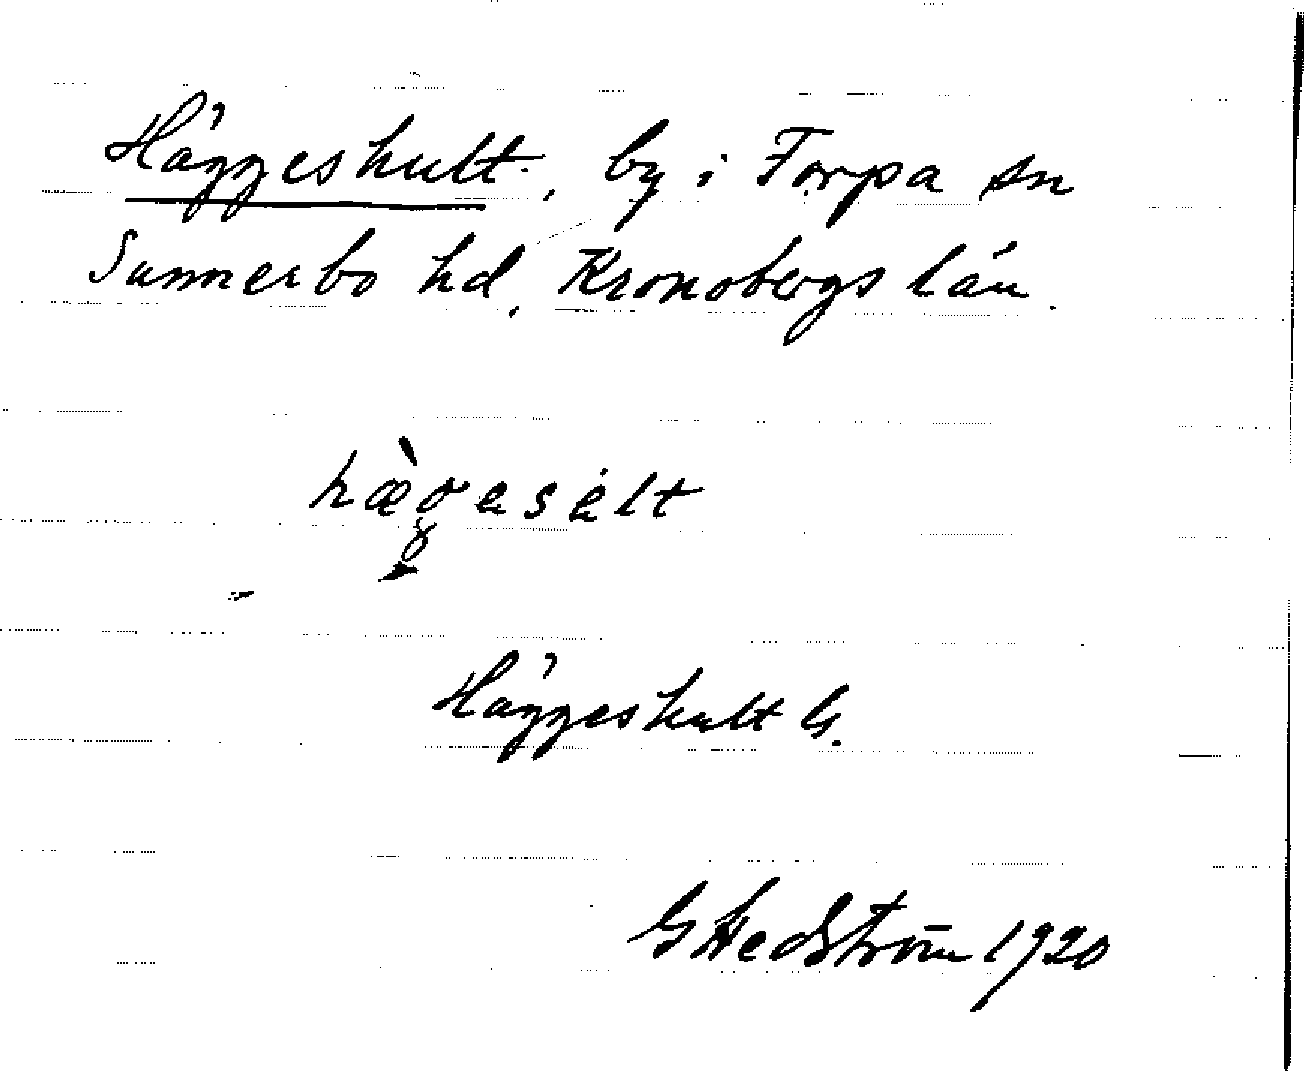 Häggeshult, by i Torpa sn
Sunnerbo hd, Kronobergs län.
Häggeshult G.
G Hedström 1920